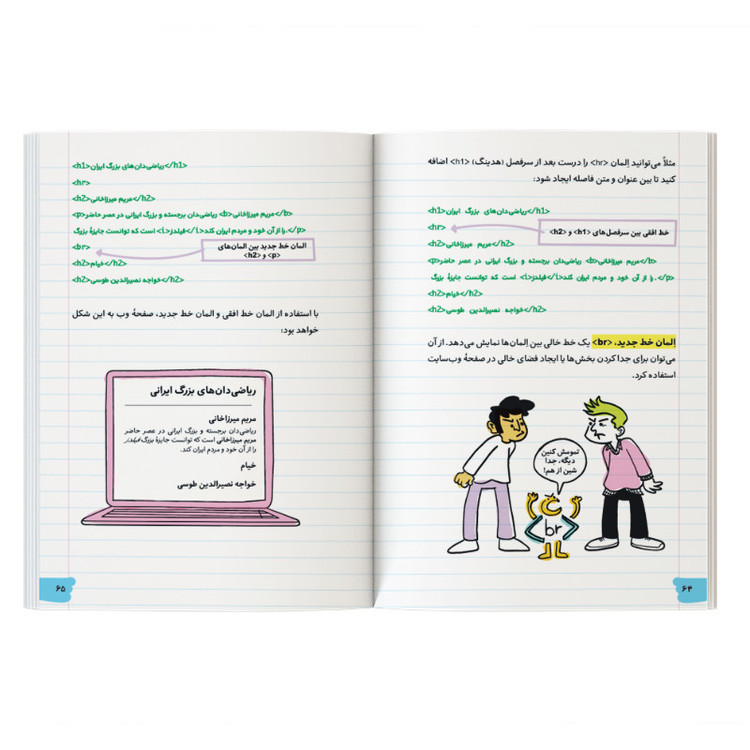 مثلاً می‌توانید اِلمان <hr> را درست بعد از سرفصل (هدینگ) <h1> اضافه
کنید تا بین عنوان و متن فاصله ایجاد شود:
<h1>ریاضی‌دان‌های بزرگ ایران</h1>
<hr>
خط افقی بین سرفصل‌های <h1> و <h2>
<h2>مریم میرزاخانی</h2>
<p>ریاضی‌دان برجسته و بزرگ ایرانی در عصر حاضر <b>مریم میرزاخانی</b>
است که توانست جایزهٔ بزرگ <i>فیلدز</i> را از آن خود و مردم ایران کند.</p>
<h2>خیام</h2>
<h2>خواجه نصیرالدین طوسی</h2>
اِلمان خط جدید، <br> یک خط خالی بین اِلمان‌ها نمایش می‌دهد. از آن
می‌توان برای جدا کردن بخش‌ها یا ایجاد فضای خالی در صفحهٔ وب‌سایت
استفاده کرد.
تمومش کنین
دیگه، جدا
شین از هم!
br
۶۴
<h1>ریاضی‌دان‌های بزرگ ایران</h1>
<hr>
<h2>مریم میرزاخانی</h2>
<p>ریاضی‌دان برجسته و بزرگ ایرانی در عصر حاضر <b>مریم میرزاخانی</b>
است که توانست جایزهٔ بزرگ <i>فیلدز</i> را از آن خود و مردم ایران کند.</p>
<br>
المان خط جدید بین المان‌های
<p> و <h2>
<h2>خیام</h2>
<h2>خواجه نصیرالدین طوسی</h2>
با استفاده از المان خط افقی و المان خط جدید، صفحهٔ وب به این شکل
خواهد بود:
ریاضی‌دان‌های بزرگ ایرانی
مریم میرزاخانی
ریاضی‌دان برجسته و بزرگ ایرانی در عصر حاضر
مریم میرزاخانی است که توانست جایزهٔ بزرگ فیلدز
را از آن خود و مردم ایران کند.
خیام
خواجه نصیرالدین طوسی
۶۵